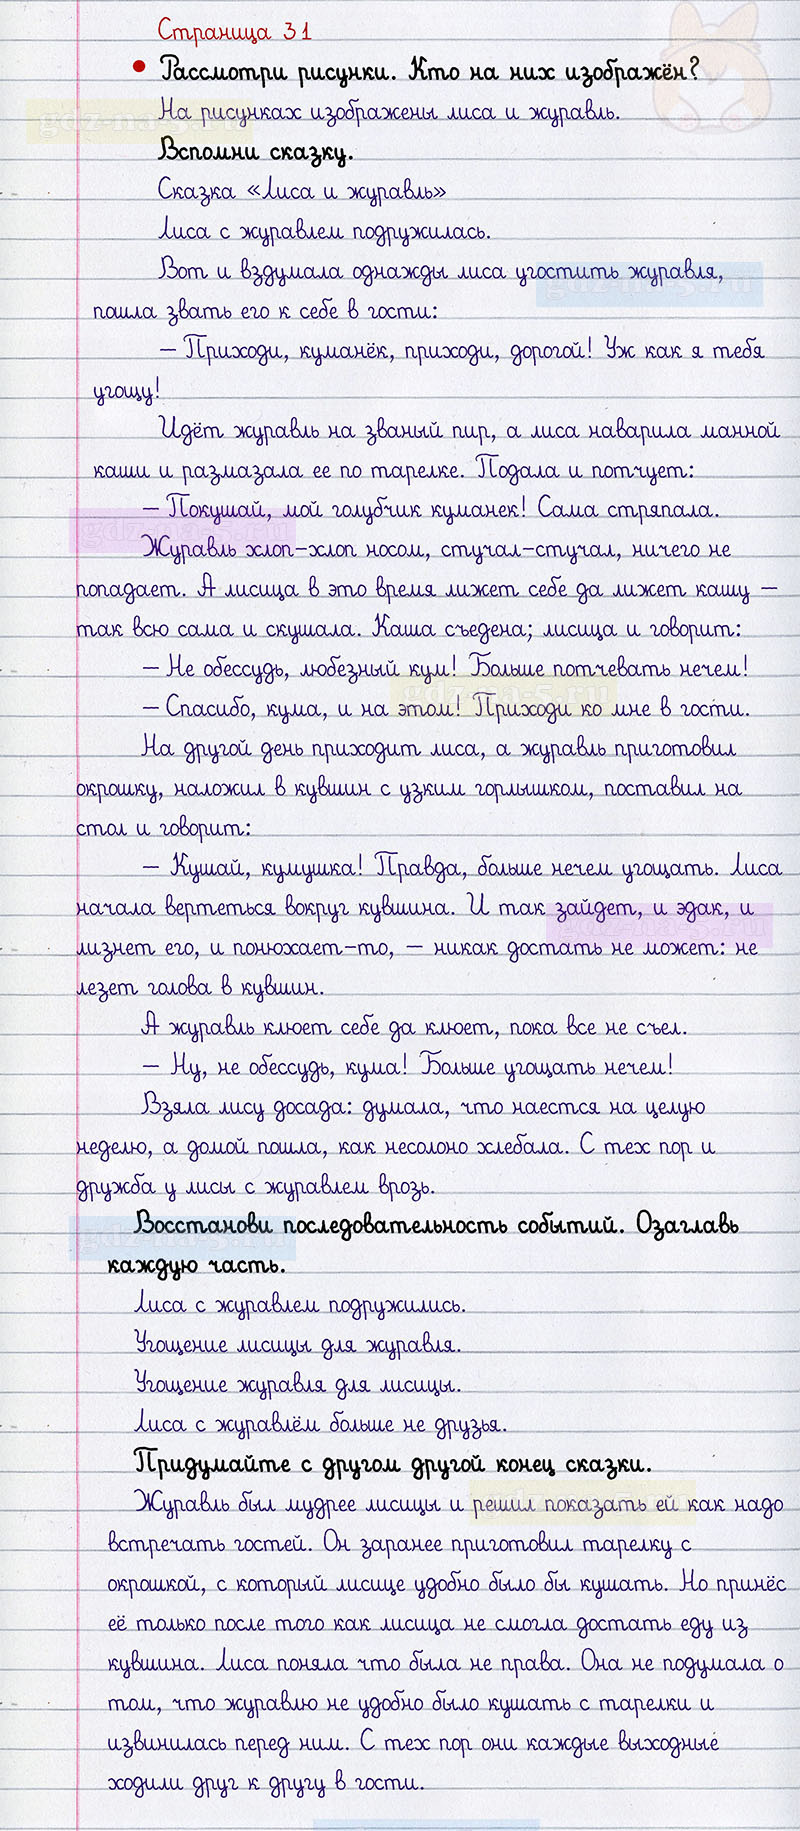 Страница 31
Рассмотри рисунки. Кто на них изображён?
На рисунках изображены лиса и журавль.
gdz-na-5.ru
Вспомни сказку.
Сказка «Лиса и журавль»
Лиса с журавлем подружилась.
Вот и вздумала однажды лиса угостить журавля,
gdz-na-5.ru
пошла звать его к себе в гости:
— Приходи, куманёк, приходи, дорогой! Уж как я тебя
угощу!
Идёт журавль на званый пир, а лиса наварила манной
каши и размазала ее по тарелке. Подала и потчует:
— Покушай, мой голубчик куманек! Сама стряпала.
gdz-na-5.ru
Журавль хлоп-хлоп носом, стучал-стучал, ничего не
попадает. А лисица в это время лижет себе да лижет кашу —
так всю сама и скушала. Каша съедена; лисица и говорит:
— Не обессудь, любезный кум! Больше потчевать нечем!
gdz-na-5.ru
— Спасибо, кума, и на этом! Приходи ко мне в гости.
На другой день приходит лиса, а журавль приготовил
окрошку, наложил в кувшин с узким горлышком, поставил на
стол и говорит:
— Кушай, кумушка! Правда, больше нечем угощать. Лиса
начала вертеться вокруг кувшина. И так зайдет, и эдак, и
gdz-na-5.ru
лизнет его, и понюхает-то, — никак достать не может: не
лезет голова в кувшин.
А журавль клюет себе да клюет, пока все не съел.
— Ну, не обессудь, кума! Больше угощать нечем!
Взяла лису досада: думала, что наестся на целую
неделю, а домой пошла, как несолоно хлебала. С тех пор и
дружба у лисы с журавлем врозь.
Восстанови последовательность событий. Озаглавь
gdz-na-5.ru
каждую часть.
Лиса с журавлем подружились.
Угощение лисицы для журавля.
Угощение журавля для лисицы.
Лиса с журавлём больше не друзья.
Придумайте с другом другой конец сказки.
Журавль был мудрее лисицы и решил показать ей как надо
gdz-na-5.ru
встречать гостей. Он заранее приготовил тарелку с
окрошкой, с который лисице удобно было бы кушать. Но принёс
её только после того как лисица не смогла достать еду из
кувшина. Лиса поняла что была не права. Она не подумала о
том, что журавлю не удобно было кушать с тарелки и
извинилась перед ним. С тех пор они каждые выходные
ходили друг к другу в гости.